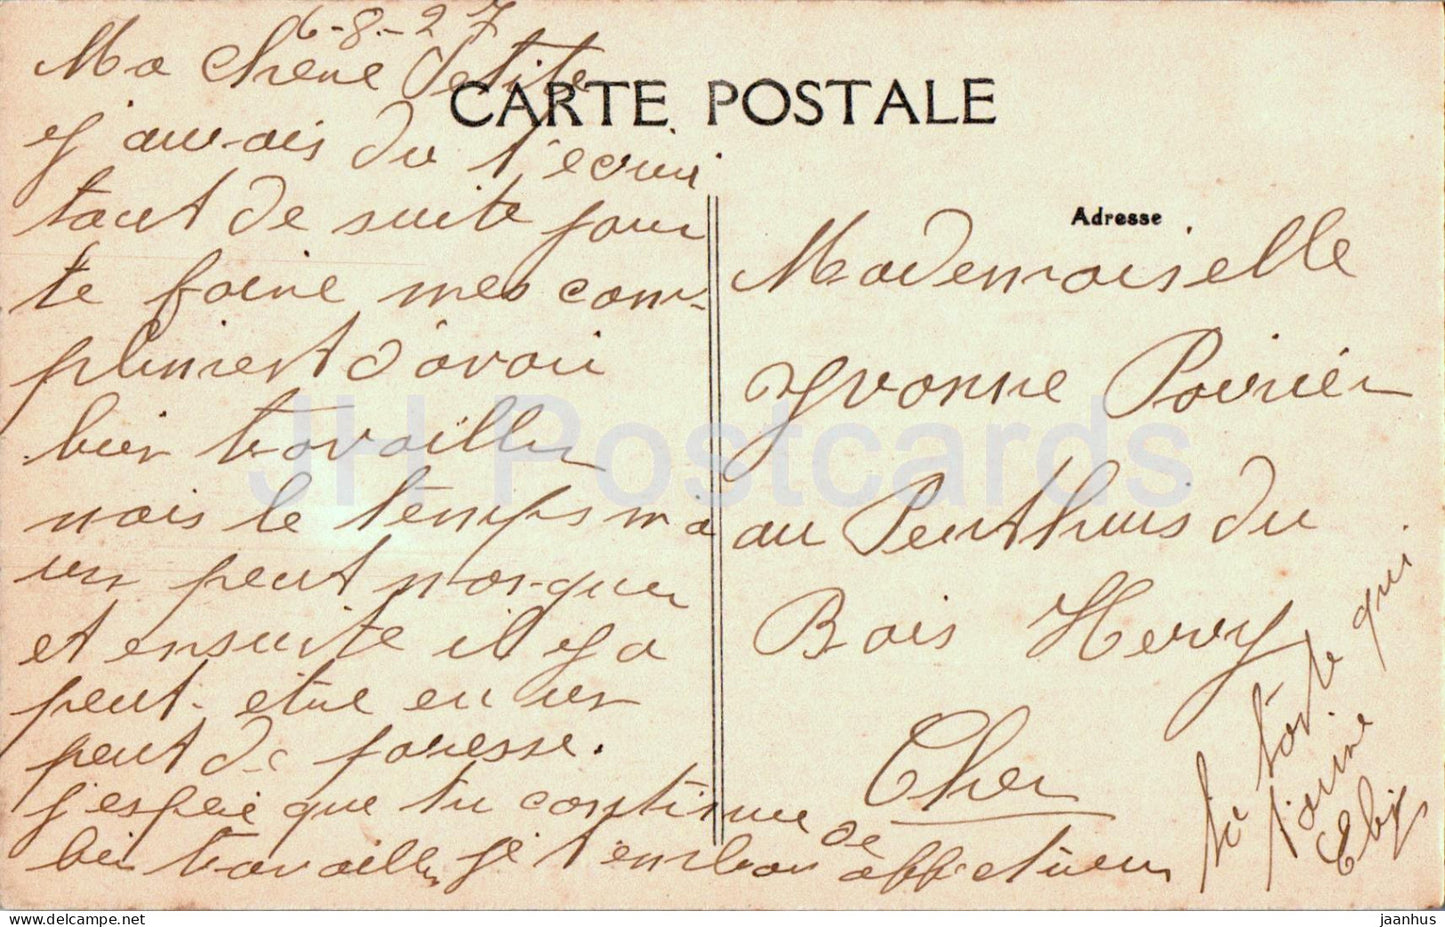 6-8-27
Ma Chere Petite
CARTE POSTALE
j'aurais du t'ecrir
tout de suite pour
te faire mes com-
pliment d'avoir
bien travailler
mais le temps m'a
un peut manquer
et ensuite il y a
peut-etre eu un
peut de paresse.
j'espere que tu continue
bien travailler je t'embrasse de
affectueu
Adresse
Mademoiselle
Yvonne Poirier
au Penthuis du
Bois Herry
Cher
ta tante qui
t'aime
JH Postcards
jaanhus